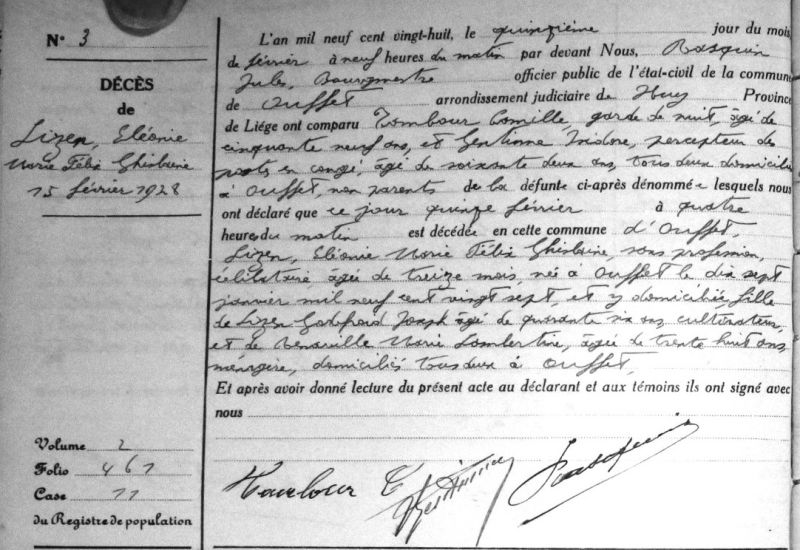 N° 3
DÉCÈS
de
Lizen, Eléonie
Marie Félix Ghislaine
15 février 1928
Volume 2
Folio 461
Case 11
du Registre de population
L'an mil neuf cent vingt-huit, le quinzième jour du mois
de février à neuf heures du matin par devant Nous, Rasquin
Jules, Bourgmestre officier public de l'état-civil de la commune
de Ouffet arrondissement judiciaire de Huy Province
de Liége ont comparu Tombour Camille, garde de nuit, âgé de
cinquante neuf ans, et Gentinne Isidore, percepteur des
postes en congé, âgé de soixante deux ans, tous deux domiciliés
à Ouffet, non parents de la défunte ci-après dénommée lesquels nous
ont déclaré que ce jour quinze février à quatre
heures du matin est décédée en cette commune d'Ouffet,
Lizen, Eléonie Marie Félix Ghislaine, sans profession,
célibataire âgée de treize mois, née à Ouffet le dix sept
janvier mil neuf cent vingt sept, et y domiciliée, fille
de Lizen Godefroid Joseph âgé de quarante six ans, cultivateur,
et de Marie Lambertine, âgée de trente huit ans,
ménagère, domiciliés tous deux à Ouffet,
Et après avoir donné lecture du présent acte au déclarant et aux témoins ils ont signé avec
nous